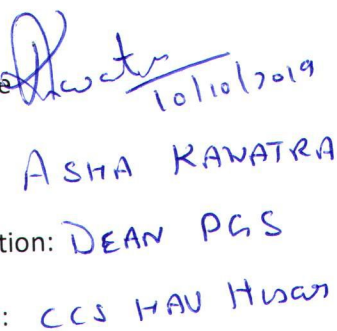 10/10/2019
ASHA KAWATRA
tion: DEAN PGS
: CCS HAU Hisar